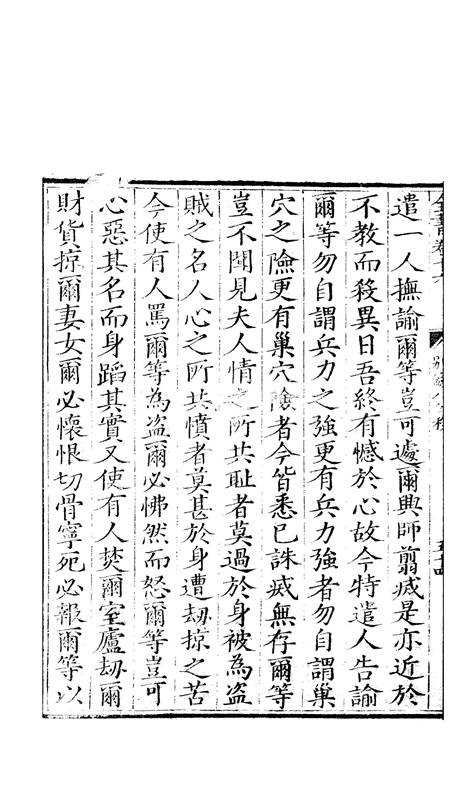 全書卷十六 別錄八 公移 五十四
遣一人撫諭爾等豈可遽爾興師翦滅是亦近於
不教而殺異日吾終有憾於心故今特遣人告諭
爾等勿自謂兵力之強更有兵力強者勿自謂巢
穴之險更有巢穴險者今皆悉已誅滅無存爾等
豈不聞見夫人情之所共恥者莫過於身被為盜
賊之名人心之所共憤者莫甚於身遭刼掠之苦
今使有人罵爾等為盜爾必怫然而怒爾等豈可
心惡其名而身蹈其實又使有人焚爾室廬刼爾
財貨掠爾妻女爾必懷恨切骨寧死必報爾等以